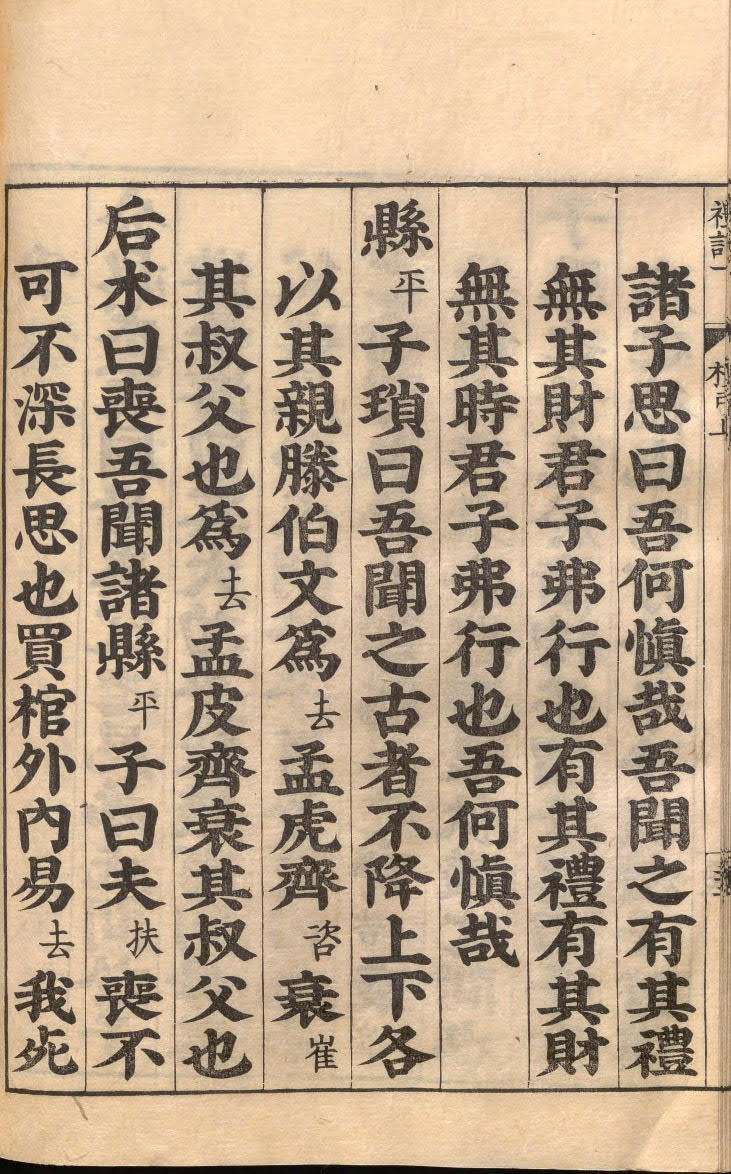 禮記一 檀弓上
諸子思曰吾何愼哉吾聞之有其禮
無其財君子弗行也有其禮有其財
無其時君子弗行也吾何愼哉
縣平子瑣曰吾聞之古者不降上下各
以其親滕伯文爲去孟虎齊咨衰崔
其叔父也爲去孟皮齊衰其叔父也
后术曰喪吾聞諸縣平子曰夫扶喪不
可不深長思也買棺外內易去我死